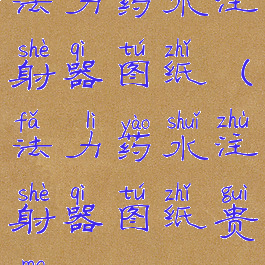 法力药水注
shè qì tú zhǐ
射器图纸（
fǎ lì yào shuǐ zhù
法力药水注
shè qì tú zhǐ guì
射器图纸贵
me